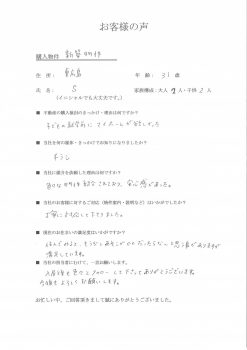 お客様の声
購入物件 新築物件
住所: 東広島 年齢: 31歳
氏名: S 家族構成:大人 2人・子供 2人
(イニシャルでも大丈夫です。)
■ 不動産の購入検討のきっかけ・理由は何ですか?
子どもの就学前にマイホームが欲しかった
■ 当社を何の媒体・きっかけでお知りになりましたか?
チラシ
■ 当社に媒介を依頼した理由は何ですか?
物件を紹介されており、安心感があった。
■ 当社のお客様に対するご対応(物件案内・説明など)はいかがでしたか?
丁寧に対応して下さりました。
■ 現在のお住まいの満足度はいかがですか?
満足しています。
■ 当社の担当者にむけて、一言お願いします。
入居後も色々とフォローして下さってありがとうございます。
今後もよろしくお願いします。
お忙しい中、ご回答頂きまして誠にありがとうございました。